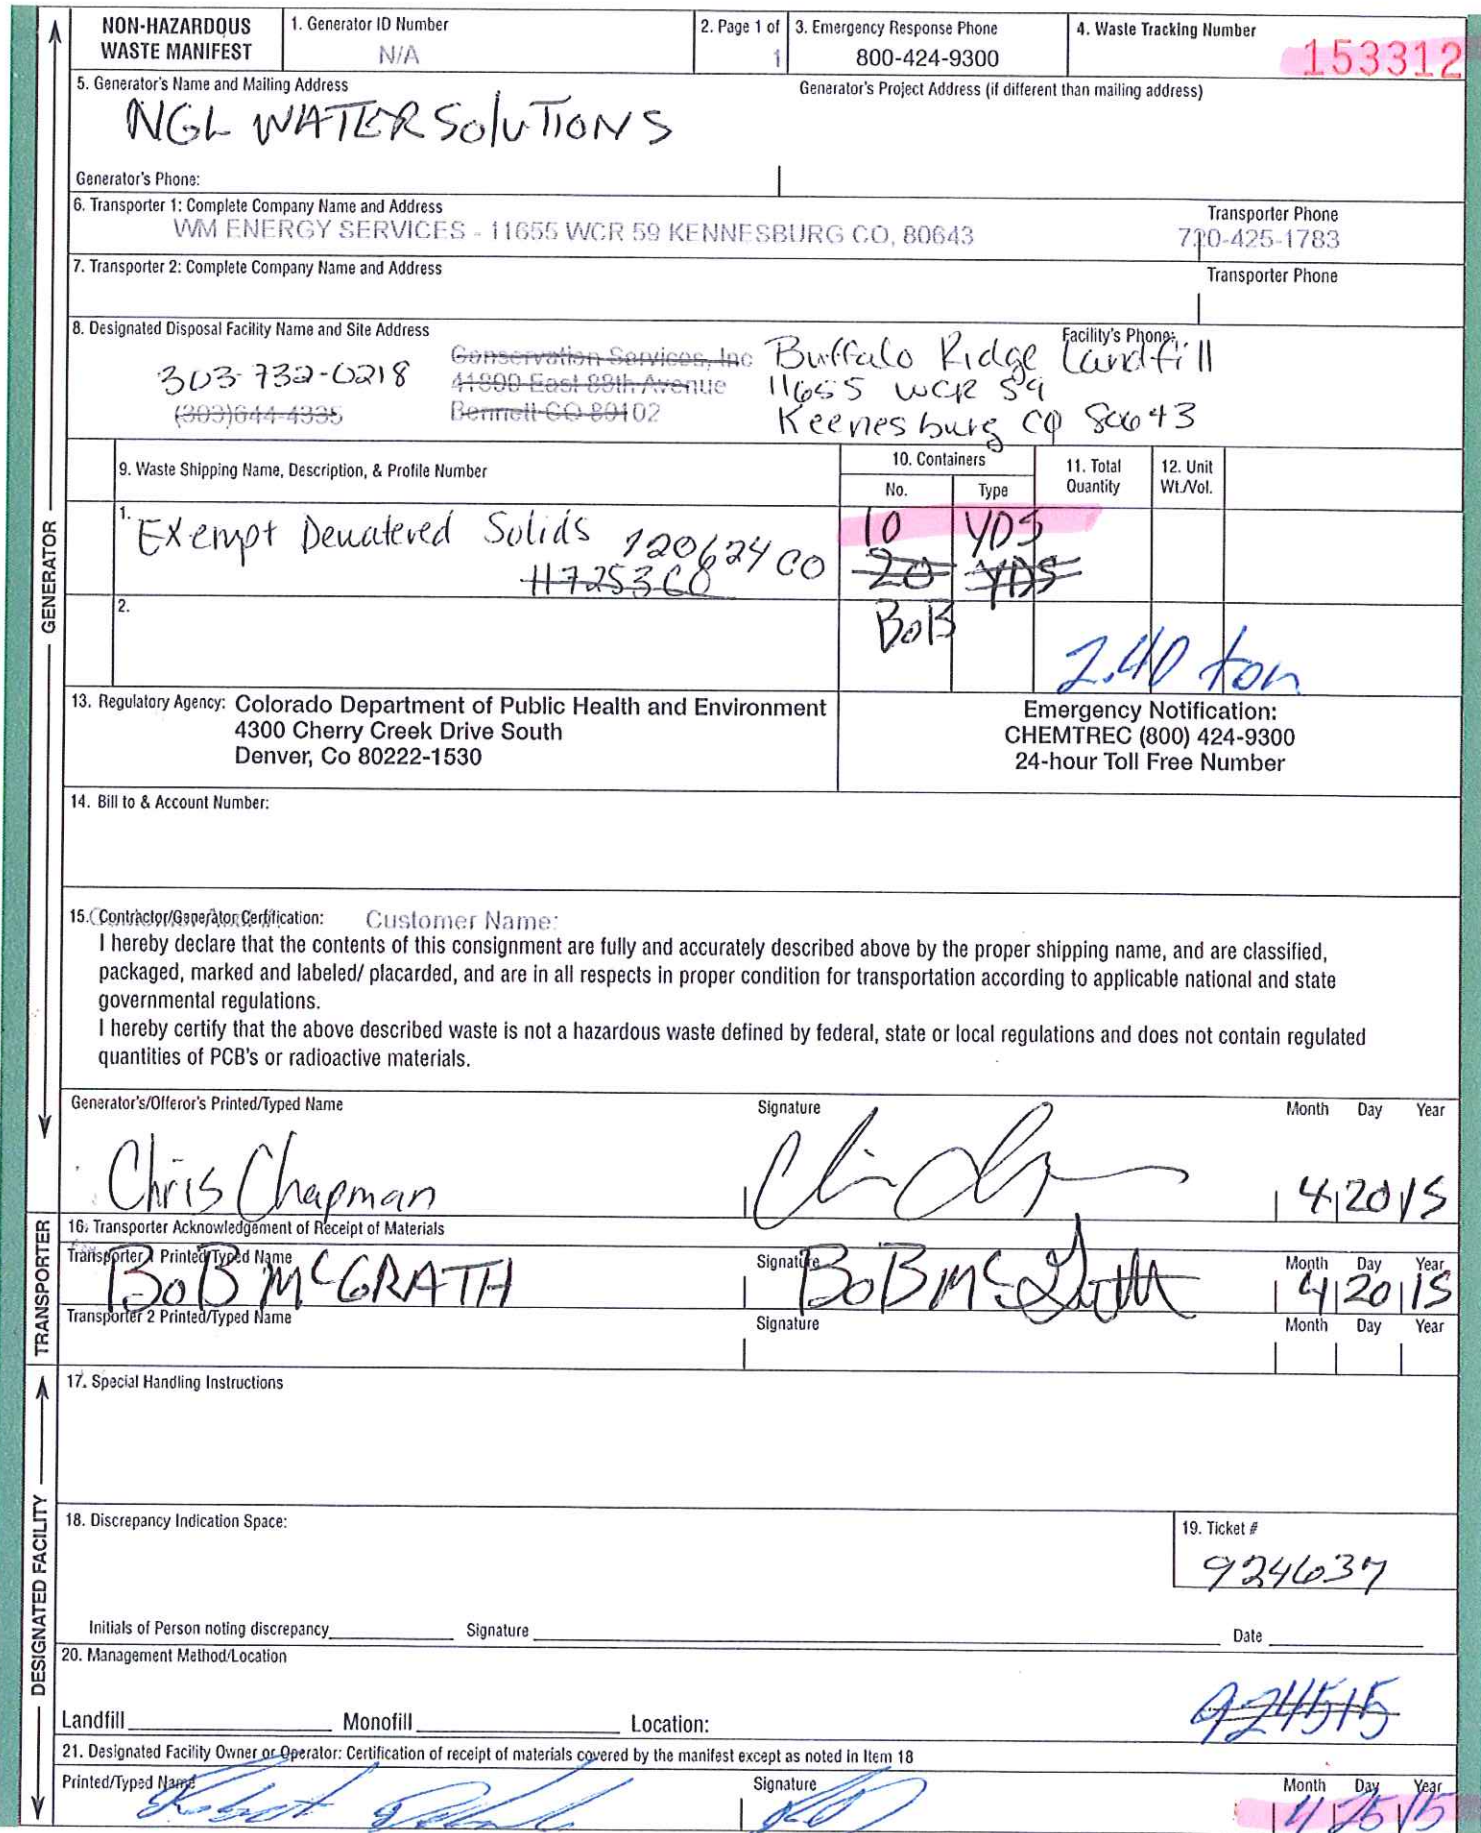 NON-HAZARDOUS WASTE MANIFEST
1. Generator ID Number
N/A
2. Page 1 of
1
3. Emergency Response Phone
800-424-9300
4. Waste Tracking Number
153312
5. Generator's Name and Mailing Address
Generator's Project Address (if different than mailing address)
NGL WATER SOLUTIONS
Generator's Phone:
6. Transporter 1: Complete Company Name and Address
Transporter Phone
WM ENERGY SERVICES - 11655 WCR 59 KENNESBURG CO, 80643
720-425-1783
7. Transporter 2: Complete Company Name and Address
Transporter Phone
8. Designated Disposal Facility Name and Site Address
Facility's Phone:
303-732-0218
(303)644-4335
Conservation Services, Inc
41800 East 88th Avenue
Bennett CO 80102
Buffalo Ridge Landfill
11655 WCR 59
Keenesburg CO 80643
9. Waste Shipping Name, Description, & Profile Number
10. Containers
No.
Type
11. Total Quantity
12. Unit Wt./Vol.
1.
Exempt Dewatered Solids 120624CO
117253CO
10 YDS
20 YDS
2.
BoB
2.40 ton
13. Regulatory Agency: Colorado Department of Public Health and Environment
4300 Cherry Creek Drive South
Denver, Co 80222-1530
Emergency Notification:
CHEMTREC (800) 424-9300
24-hour Toll Free Number
14. Bill to & Account Number:
15. Contractor/Generator Certification: Customer Name:
I hereby declare that the contents of this consignment are fully and accurately described above by the proper shipping name, and are classified,
packaged, marked and labeled/ placarded, and are in all respects in proper condition for transportation according to applicable national and state
governmental regulations.
I hereby certify that the above described waste is not a hazardous waste defined by federal, state or local regulations and does not contain regulated
quantities of PCB's or radioactive materials.
Generator's/Offeror's Printed/Typed Name
Signature
Month Day Year
Chris Chapman
4 20 15
16. Transporter Acknowledgement of Receipt of Materials
Transporter 1 Printed/Typed Name
Signature
Month Day Year
BoB McGRATH
BoB McGrath
4 20 15
Transporter 2 Printed/Typed Name
Signature
Month Day Year
17. Special Handling Instructions
18. Discrepancy Indication Space:
19. Ticket #
924637
Initials of Person noting discrepancy
Signature
Date
20. Management Method/Location
924515
Landfill
Monofill
Location:
21. Designated Facility Owner or Operator: Certification of receipt of materials covered by the manifest except as noted in Item 18
Printed/Typed Name
Signature
Month Day Year
Robert
4 25 15
GENERATOR
TRANSPORTER
DESIGNATED FACILITY